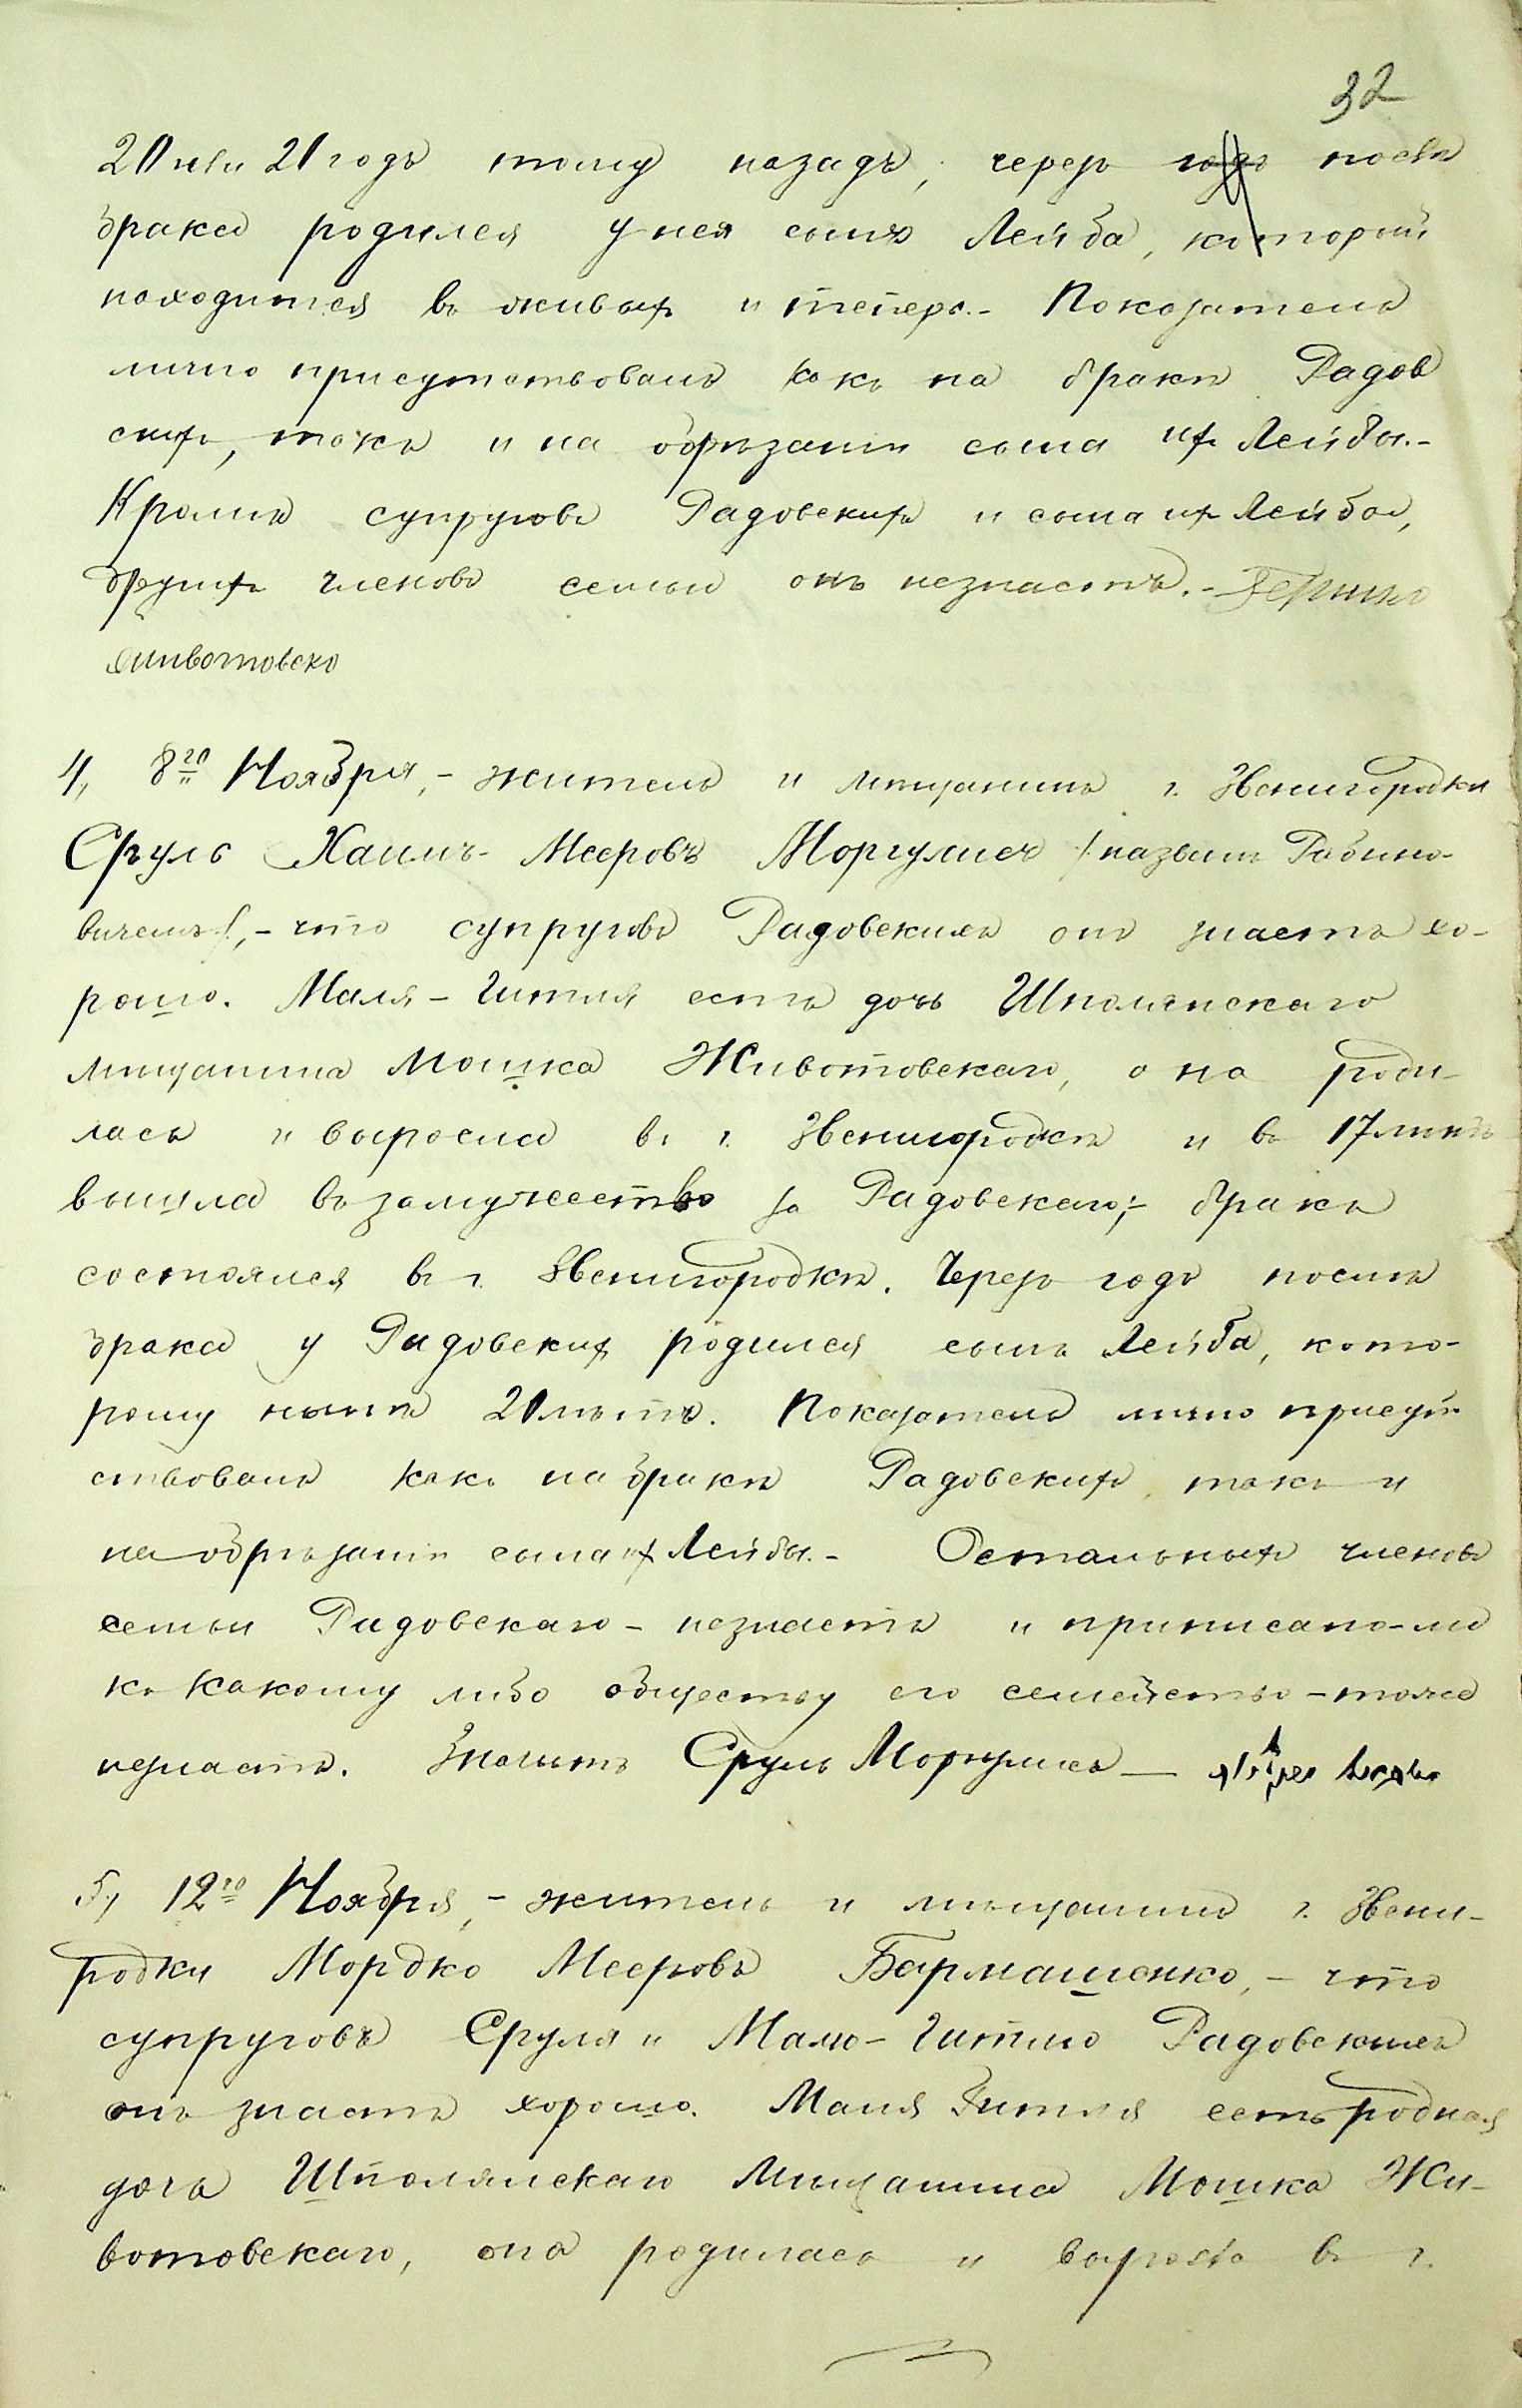 32
20 или 21 годъ тому назадъ, черезъ годъ послѣ
брака родился у нея сынъ Лейба, который
находится въ живыхъ и теперь.- Показатель
лично присутствовалъ какъ на бракѣ Радов
скихъ, такъ и на обрѣзаніи сына ихъ Лейбы.-
Кромѣ супруговъ Радовскихъ и сына ихъ Лейбы,
другихъ членовъ семьи онъ незнаетъ.- Гершко
Животовско
4, 8го Ноября,- житель и мѣщанинъ г. Звенигородки
Сруль Хаимъ-Мееровъ Моргулисъ /: назвавш. Рабино-
вичемъ :/,- что супруговъ Радовскихъ онъ знаетъ хо-
рошо. Маля-Гитля есть дочь Шполянскаго
мѣщанина Мошка Животовскаго, она роди-
лась и выросла въ г. Звенигородкѣ и въ 17 лѣтъ
вышла въ замужество за Радовскаго;- бракъ
состоялся въ г. Звенигородкѣ. Черезъ годъ послѣ
брака у Радовскихъ родился сынъ Лейба, кото-
рому нынѣ 20 лѣтъ. Показатель лично присут-
ствовалъ какъ на бракѣ Радовскихъ такъ и
на обрѣзаніи сына ихъ Лейбы.- Остальныхъ членовъ
семьи Радовскаго- незнаетъ и приписано-ли
къ какому либо обществу его семейство- тоже
незнаетъ. Значитъ Сруль Моргулисъ —
5, 12го Ноября,- житель и мѣщанинъ г. Звени-
родки Мордко Мееровъ Бармашенко,- что
супруговъ Сруля и Малю-Гитлю Радовскихъ
онъ знаетъ хорошо. Маля Гитля есть родная
дочь Шполянскаго мѣщанина Мошка Жи-
вотовскаго, она родилась и выросла въ г.